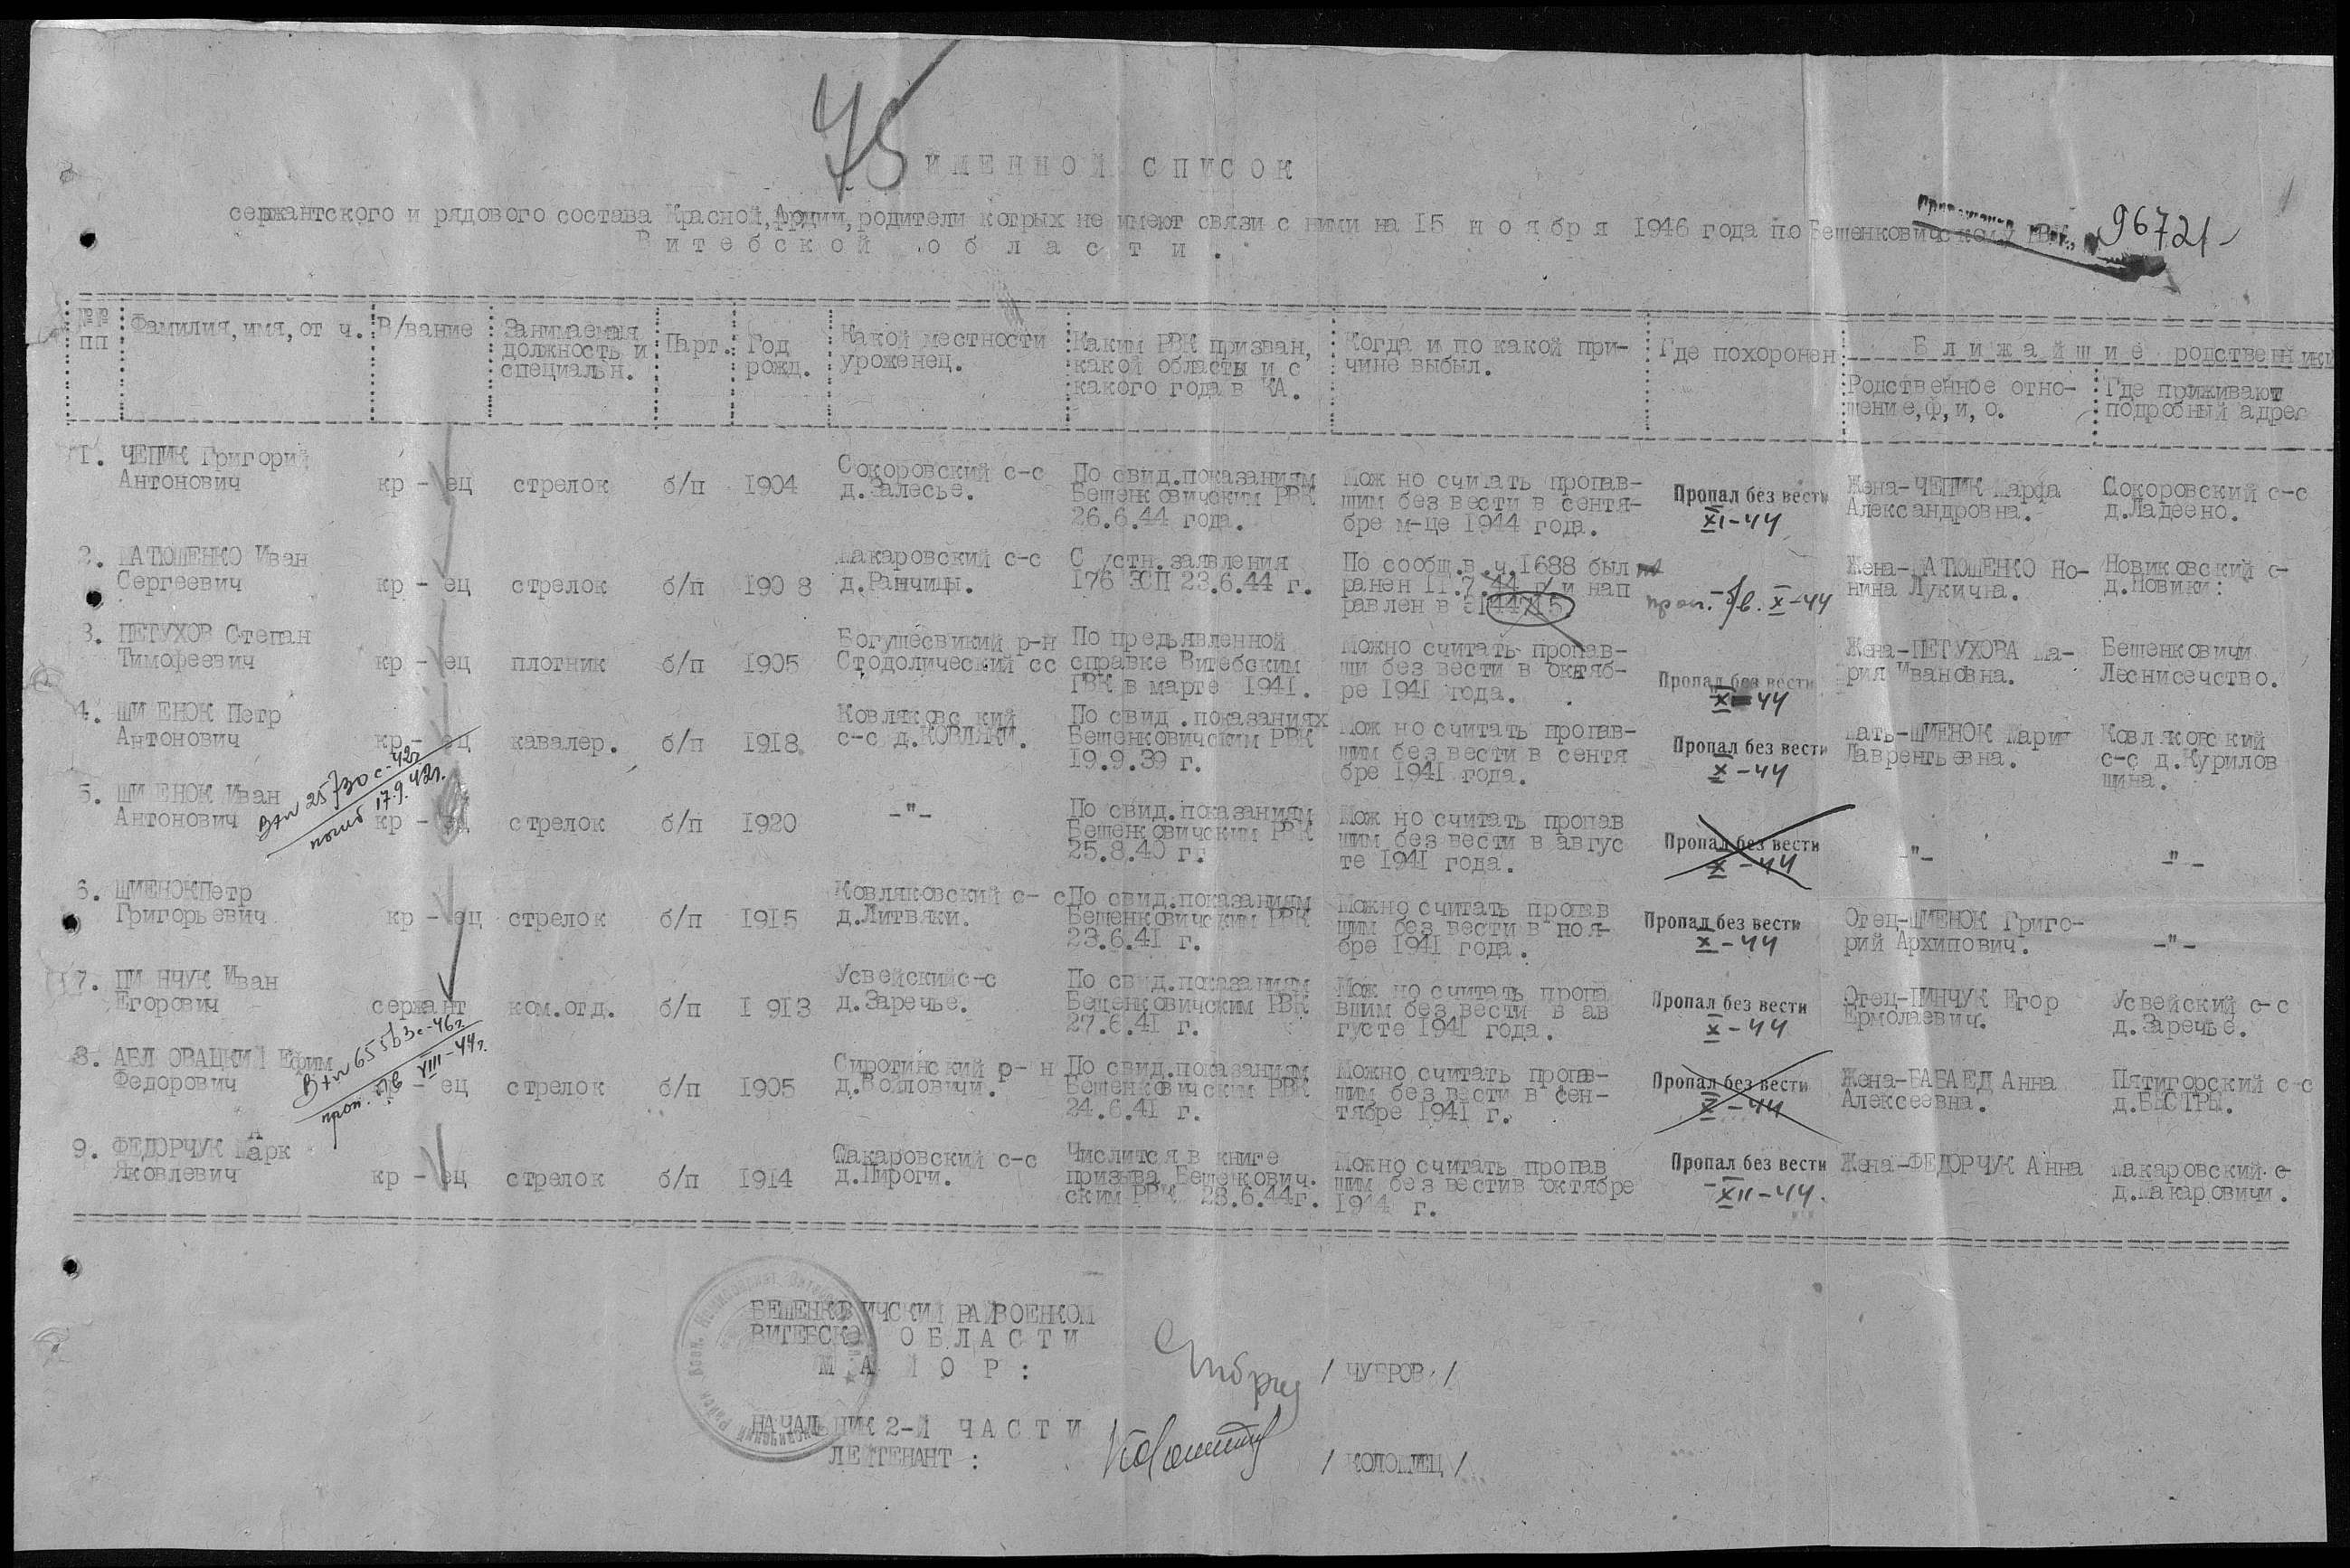 75
ИМЕННОЙ СПИСОК
сержантского и рядового состава Красной Армии, родители котрых не имеют связи с ними на 15 ноября 1946 года по Бешенковичскому РВК,
96721
Витебской области.
№№ пп
Фамилия, имя, от ч.
В/звание
Занимаемая должность и специальн.
Парт.
Год рожд.
Какой местности уроженец.
Каким РВК призван, какой области и с какого года в КА.
Когда и по какой причине выбыл.
Где похоронен
Ближайшие родственники
Родственное отношение, ф, и, о.
Где приживают подробный адрес
1. ЧЕПИК Григорий Антонович кр - ец стрелок б/п 1904 Сокоровский с-с д.Залесье. По свид.показаниям Бешенковичским РВК 26.6.44 года. Мож но считать пропавшим без вести в сентябре м-це 1944 года. Пропал без вести XI-44 Жена-ЧЕПИК Марфа Александровна. Сокоровский с-с д.Ладеено.
2. МАТЮШЕНКО Иван Сергеевич кр - ец стрелок б/п 190 8 Макаровский с-с д.Ранчицы. С устн.заявления 176 ЗСП 23.6.44 г. По сообщ.в.ч.1688 был ранен 11.7.44 г. и нап равлен в проп. б/в. X-44 Жена-МАТЮШЕНКО Нонина Лукична. Новиковский с- д.Новики:
3. ПЕТУХОВ Степан Тимофеевич кр - ец плотник б/п 1905 Богушесвикий р-н Стодолический сс По предъявленной справке Витебским ГВК в марте 1941. Можно считать пропавши без вести в октябре 1941 года. Пропал без вести X 44 Жена-ПЕТУХОВА Мария Ивановна. Бешенковичи Леснисечство.
4. ШИ ЕНОК Петр Антонович кр - ец кавалер. б/п 1918 Ковляковс кий с-с д.КОВЛЯКИ. По свид .показаниях Бешенковичским РВК 19.9.39 г. Мож но считать пропавшим без вести в сентя бре 1941 года. Пропал без вести X-44 Мать-ШИЕНОК Мария Лаврентьевна. Ковляковский с-с д.Курилов щина.
Вх№ 25730с-42г.
погиб 17.9.42г.
5. ШИ ЕНОК Иван Антонович кр - ец стрелок б/п 1920 -"- По свид.показаниям Бешенковичским РВК 25.8.40 г. Мож но считать пропав шим без вести в авгус те 1941 года. Пропал без вести X-44 -"- -"-
6. ШИЕНОКПетр Григорьевич кр - ец стрелок б/п 1915 Ковляковский с- с д.Литвяки. По свид.показаниям Бешенковичским РВК 23.6.41 г. Можно считать пропав шим без вести в ноябре 1941 года. Пропал без вести X-44 Отец-ШИЕНОК Григорий Архипович. -"-
7. ПИ НЧУК Иван Егорович сержант ком.отд. б/п 1 913 Усвейскийс-с д.Заречье. По свид.показаниям Бешенковичским РВК 27.6.41 г. Мож но считать пропа вшим без вести в ав густе 1941 года. Пропал без вести X-44 Отец-ПИНЧУК Егор Ермолаевич. Усвейский с-с д.Заречье.
Вх№ 65563с-46г
проп. б/в VIII-44г.
8. АВЛ ОВАЦКИЙ Ефим Федорович ец стрелок б/п 1905 Сиротинский р- н д.Войловичи. По свид.показаниям Бешенковичским РВК 24.6.41 г. Можно считать пропавшим без вести в сентябре 1941 г. Пропал без вести X-44 Жена-БАБАЕД Анна Алексеевна. Пятигорский с-с д.БЫСТРЫ.
9. ФЕДОРЧУК Марк Яковлевич кр - ец стрелок б/п 1914 Макаровский с-с д.Пироги. Числится в книге призыва Бешенкович. ским РВК 28.6.44г. Можно считать пропав шим без вестив октябре 1944 г. Пропал без вести XII-44. Жена-ФЕДОРЧУК Анна Макаровский с- д.Макаровичи.
БЕШЕНКОВИЧСКИЙ РАЙВОЕНКОМ
ВИТЕБСКОЙ ОБЛАСТИ
МАЙОР: / ЧУБРОВ /
НАЧАЛЬНИК 2-Й ЧАСТИ
ЛЕЙТЕНАНТ: / КОЛОМИЕЦ /